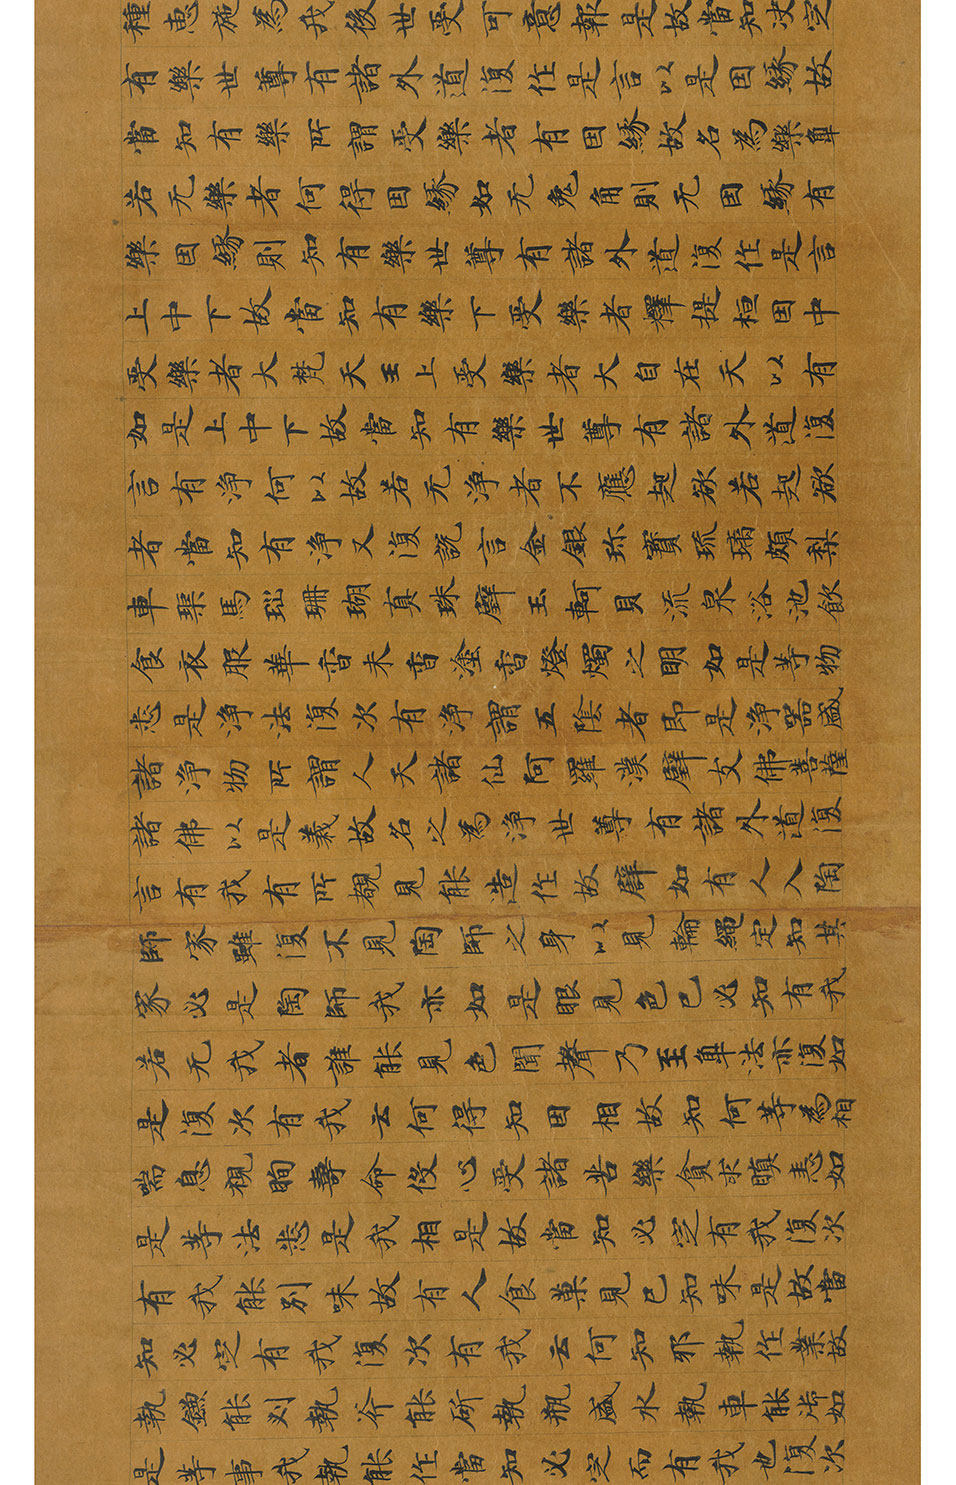 種恵施為我後世受可意報是故當知決定
有樂世尊有諸外道復作是言以是因緣故
當知有樂所謂受樂者有因緣故名為樂觸
若无樂者何得因緣如无兔角則无因緣有
樂因緣則知有樂世尊有諸外道復作是言
上中下故當知有樂下受樂者釋提桓因中
受樂者大梵天王上受樂者大自在天以有
如是上中下故當知有樂世尊有諸外道復
言有淨何以故若无淨者不應起欲若起欲
者當知有淨又復說言金銀珎寶琉璃頗梨
車𤦲馬瑙珊瑚真珠璧玉軻貝流泉浴池飲
食衣服華香末香塗香燈燭之明如是等物
悉是淨法復次有淨謂五陰者即是淨器盛
諸淨物所謂人天諸仙阿羅漢辟支佛菩薩
諸佛以是義故名之為淨世尊有諸外道復
言有我有所覩見能造作故譬如有人入陶
師家雖復不見陶師之身以見輪繩定知其
家必是陶師我亦如是眼見色已必知有我
若无我者誰能見色聞聲乃至觸法亦復如
是復次有我云何得知因相故知何等為相
喘息視眴壽命役心受諸苦樂貪求瞋恚如
是等法悉是我相是故當知必定有我復次
有我能別味故有人食菓見已知味是故當
知必定有我復次有我云何知邪執作業故
執鎌能刈執斧能斫執瓶盛水執車能御如
是等事我執能作當知必定而有我也復次